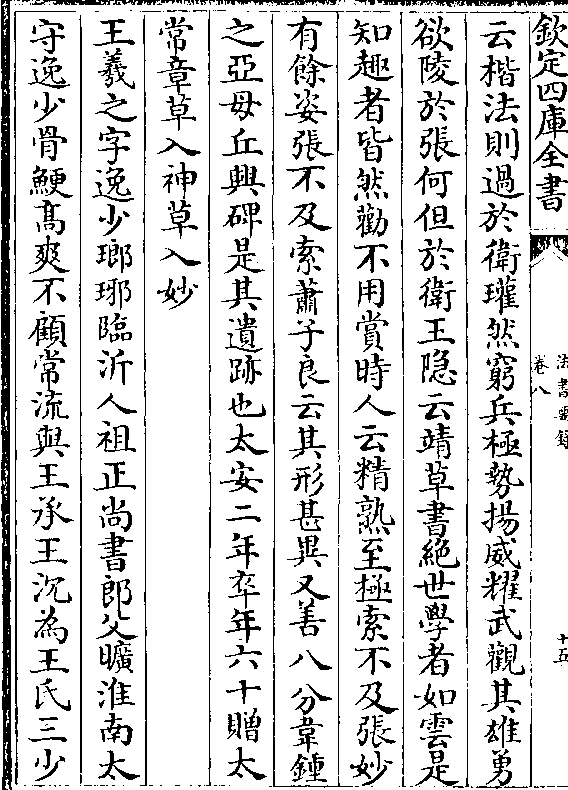 欽定四庫全書
法書要錄
卷八
十五
云楷法則過於衛瓘然窮兵極勢揚威耀武觀其雄勇
欲陵於張何但於衛王隐云靖草書絶世學者如雲是
知趣者皆然勸不用賞時人云精熟至極索不及張妙
有餘姿張不及索蕭子良云其形甚異又善八分韋鍾
之亞毋丘興碑是其遺跡也太安二年卒年六十贈太
常章草入神草入妙
王羲之字逸少瑯琊臨沂人祖正尚書郎父曠淮南太
守逸少骨鯁髙爽不顧常流與王承王沉為王氏三少